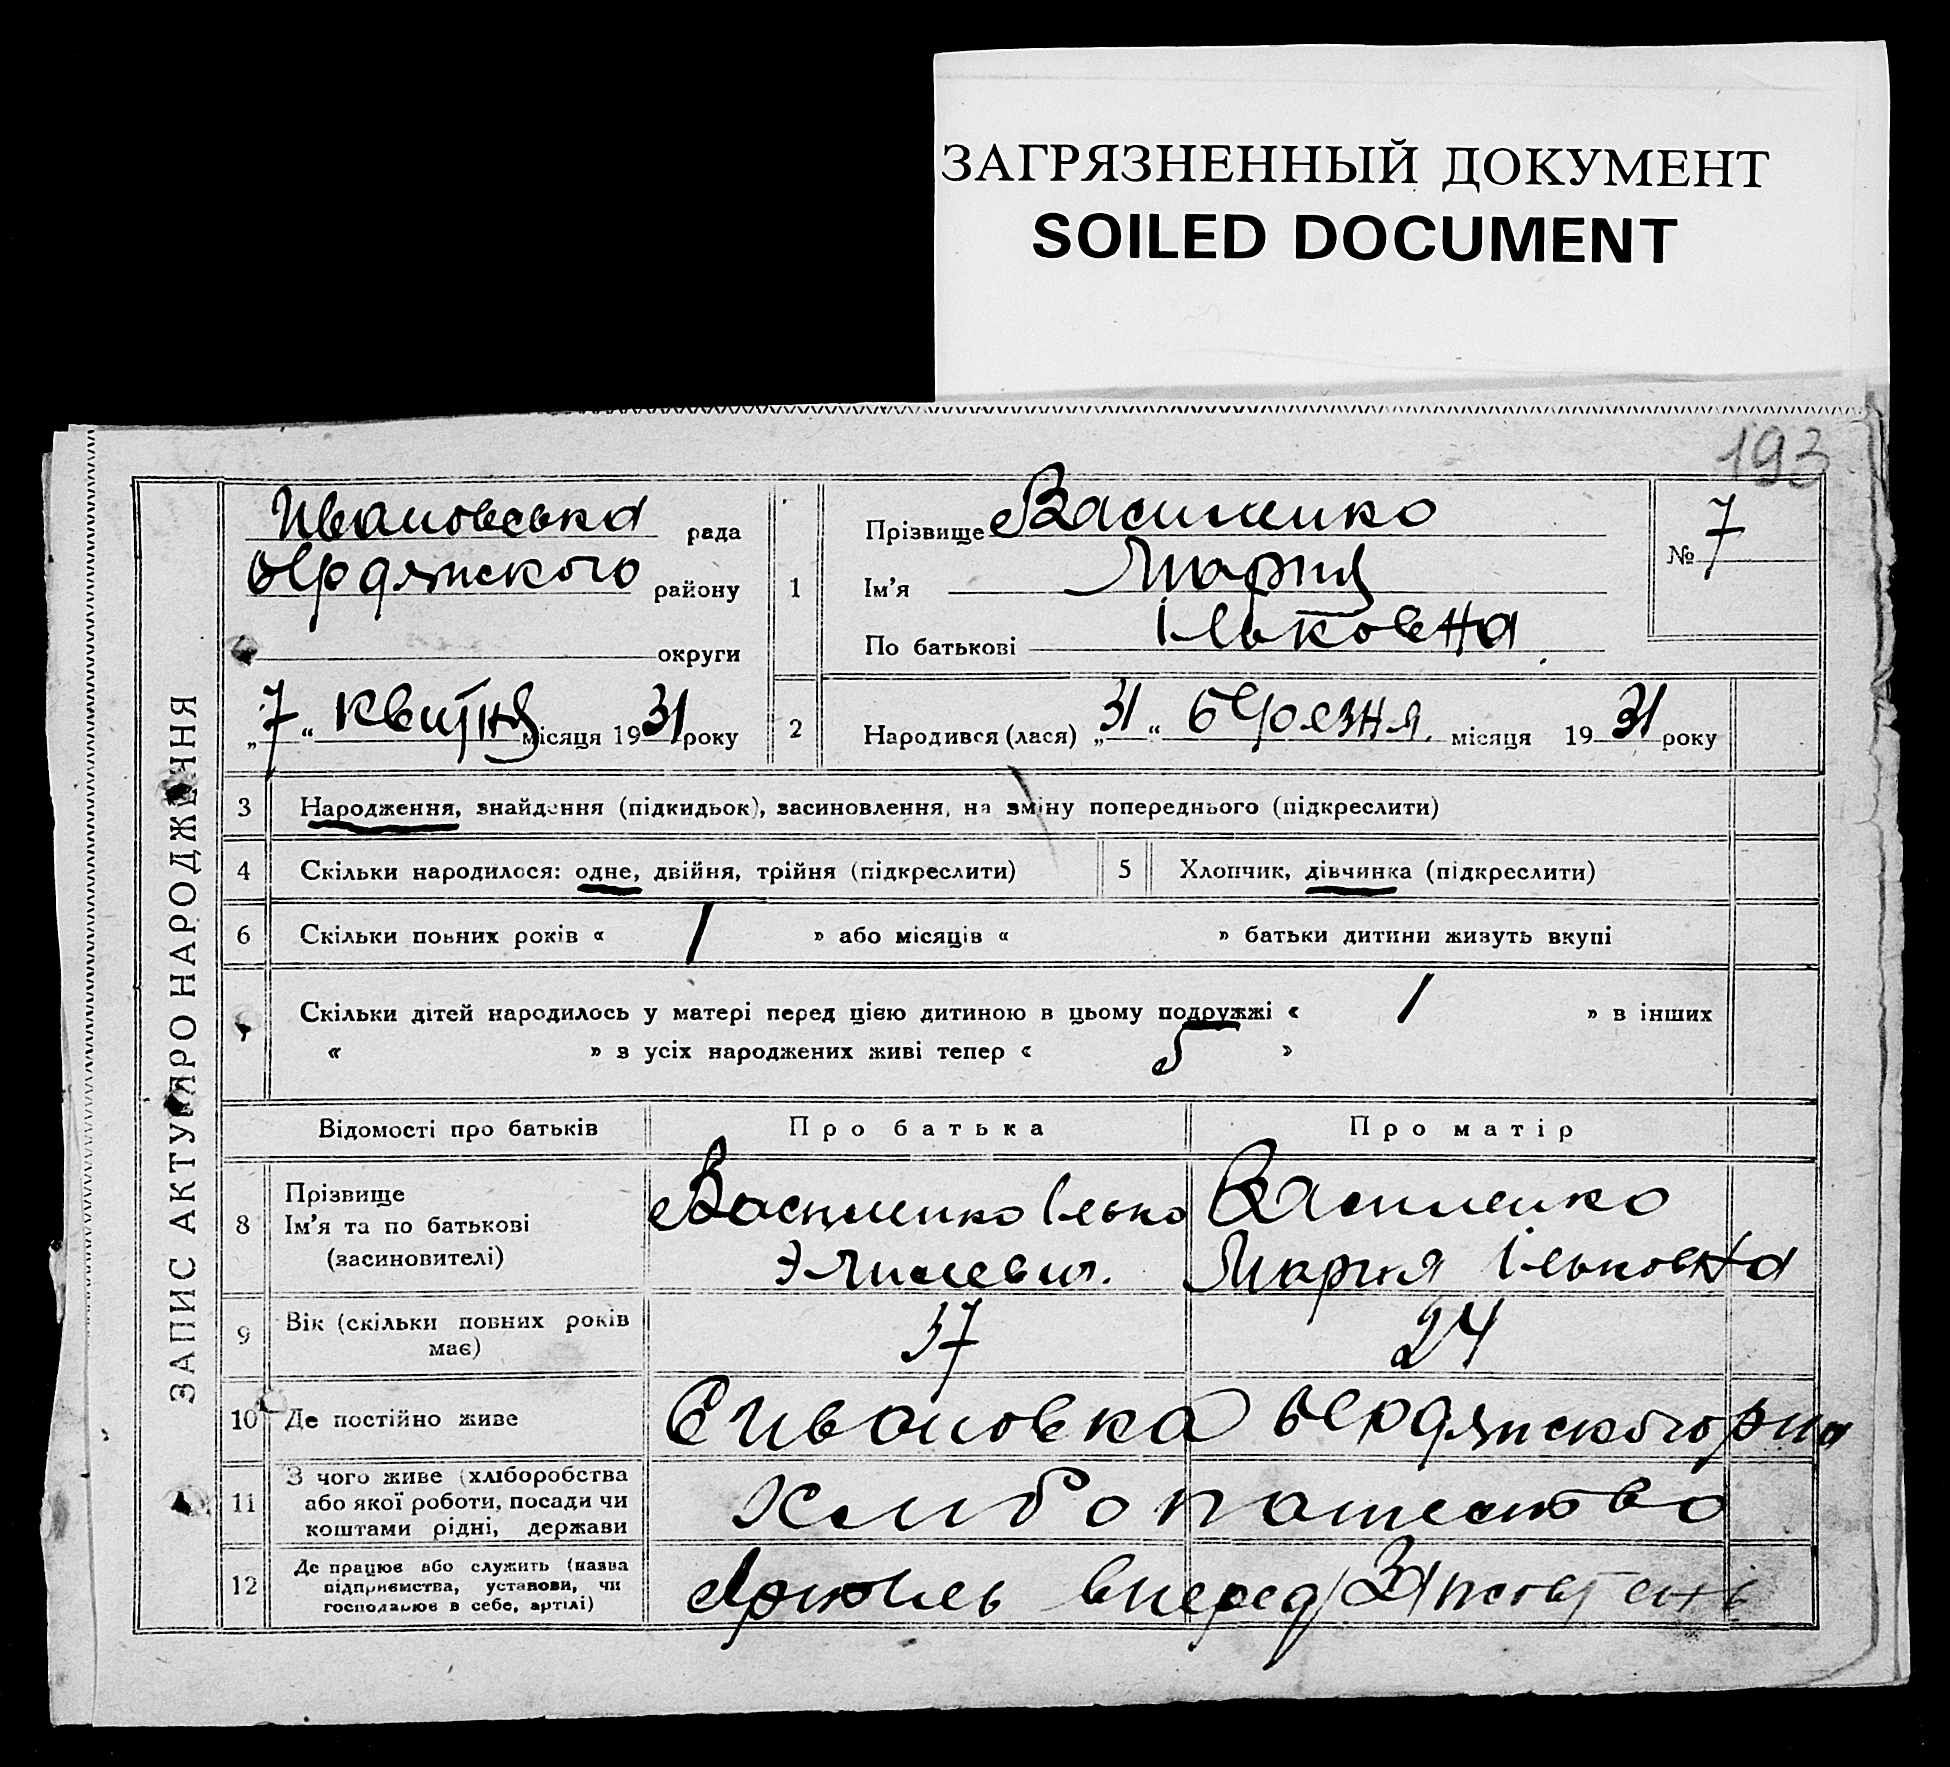 ЗАГРЯЗНЕННЫЙ ДОКУМЕНТ
SOILED DOCUMENT
193
ЗАПИС АКТУ ПРО НАРОДЖЕННЯ
Ивановська рада
Бердянського району
округи
„7“ квитня місяця 1931 року
1
Прізвище Василенко
Ім'я Мария
По батькові Ільковна
№ 7
2 Народився (лася) „31“ березня місяця 1931 року
3 Народження, знайдення (підкидьок), засиновлення, на зміну попереднього (підкреслити)
4 Скільки народилося: одне, двійня, трійня (підкреслити) 5 Хлопчик, дівчинка (підкреслити)
6 Скільки повних років « 1 » або місяців « » батьки дитини живуть вкупі
7 Скільки дітей народилось у матері перед цією дитиною в цьому подружжі « 1 » в інших
« » з усіх народжених живі тепер « 5 »
Відомості про батьків Про батька Про матір
8 Прізвище
Ім'я та по батькові
(засиновителі)
Василенко Ілько
Василенко
Мария Ільковна
9 Вік (скільки повних років має) 37 24
10 Де постійно живе С Ивановка Бердянського рна
11 З чого живе (хліборобства
або якої роботи, посади чи
коштами рідні, держави
Хлибопашество
12 Де працює або служить (назва
підприємства, установи, чи
господарює в себе, артілі)
Артиль вперед/За жовтень